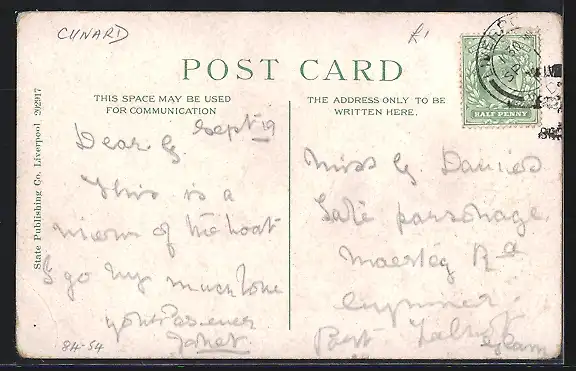 CUNARD
£1
POST CARD
THIS SPACE MAY BE USED
FOR COMMUNICATION
THE ADDRESS ONLY TO BE
WRITTEN HERE.
HALF PENNY
State Publishing Co. Liverpool 202917
Sept 19
Dear G
This is a
view of the boat
I go by much love
yours as ever
Janet
84-54
Miss G Davies
parsonage
Maesteg Rd
Port Talbot
Glam